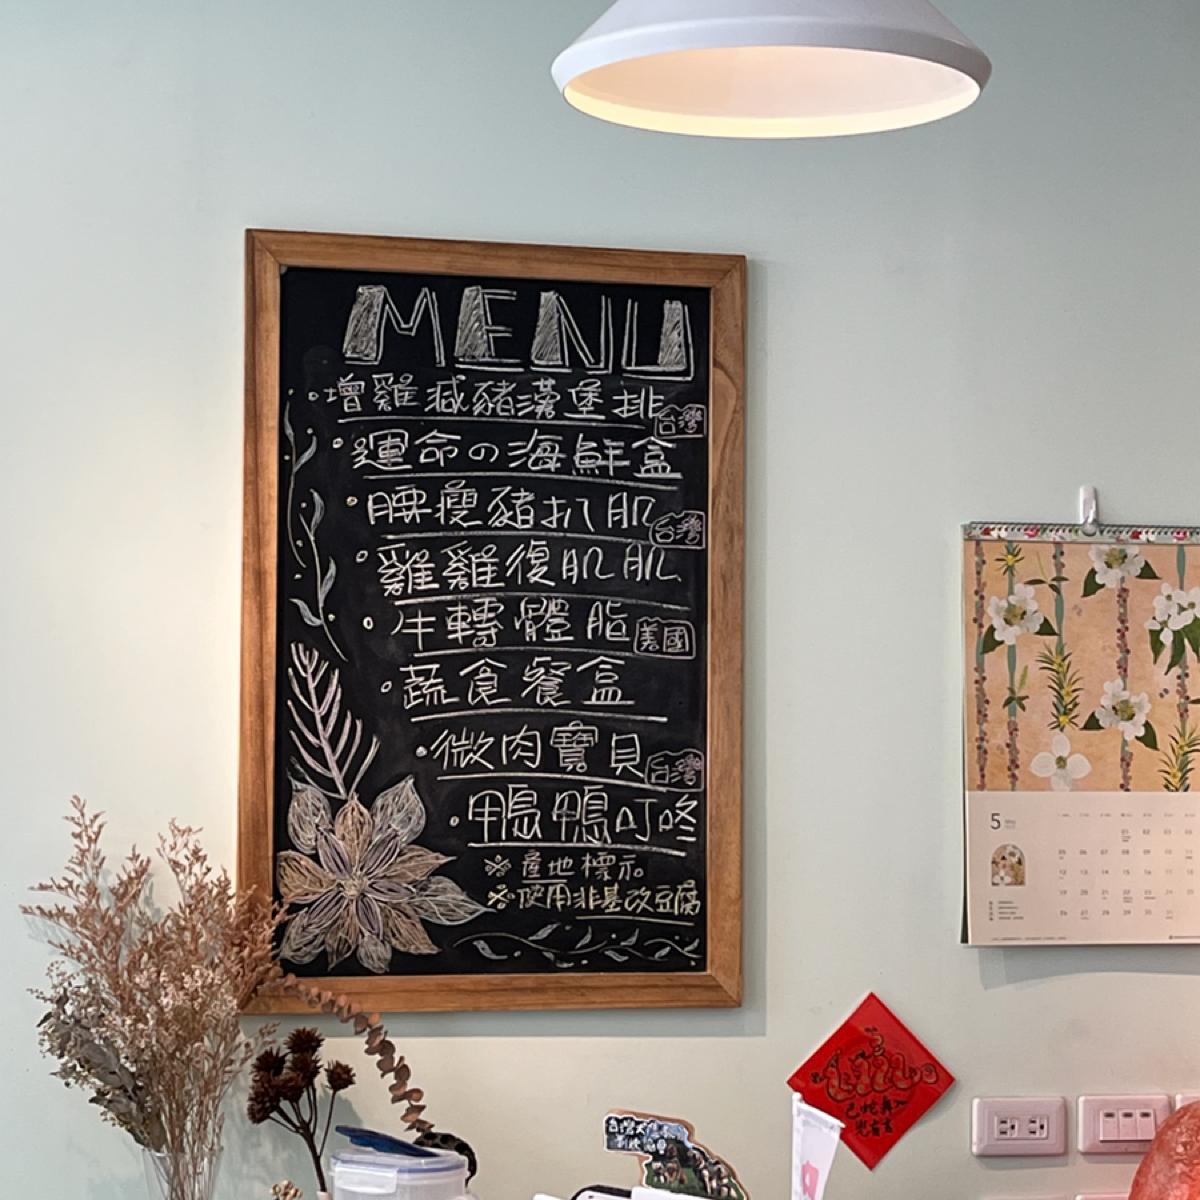 MENU
增雞減豬漢堡排 台灣
運命の海鮮盒
腰瘦豬扒肌 台灣
雞雞復肌肌
牛轉體脂 美國
蔬食餐盒
微肉寶貝 台灣
鴨鴨叮咚
※產地標示
※使用非基改豆腐
5 May